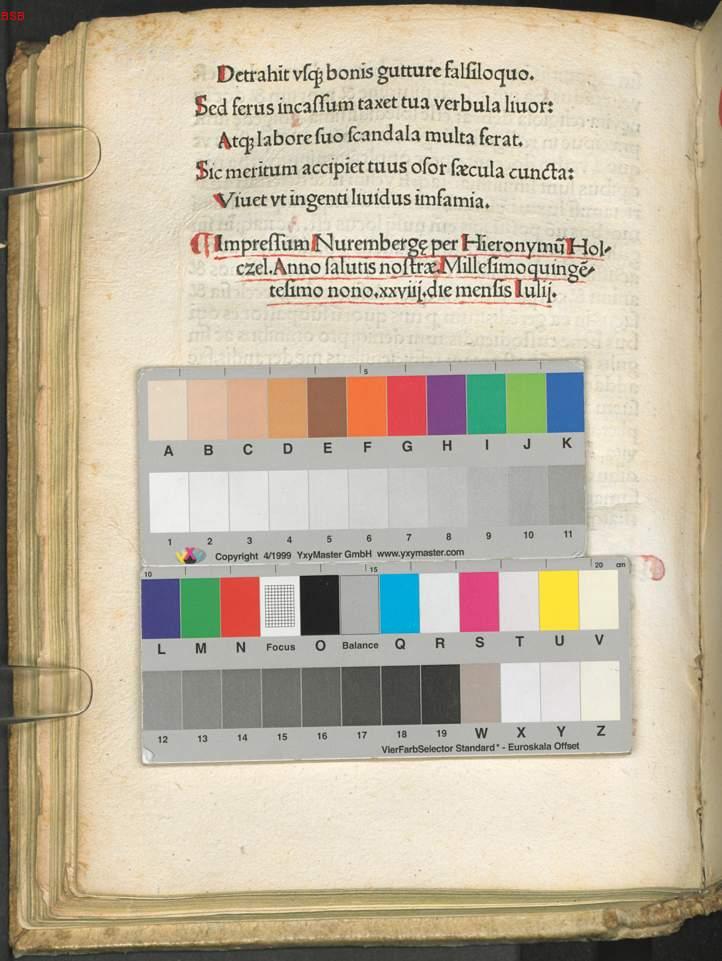 BSB
Detrahit vſqꝫ bonis gutture falſiloquo.
Sed ferus incaſſum taxet tua verbula liuor:
Atqꝫ labore ſuo ſcandala multa ferat.
Sic meritum accipiet tuus oſor ſæcula cuncta:
Viuet vt ingenti liuidus imfamia.
Impreſſum Nurembergę per Hieronymū Hol-
czel. Anno ſalutis noſtræ Milleſimoquingē-
teſimo nono. xxviij. die menſis Iulij.
5
A B C D E F G H I J K
1 2 3 4 5 6 7 8 9 10 11
YXY Copyright 4/1999 YxyMaster GmbH www.yxymaster.com
10 15 20 cm
L M N Focus O Balance Q R S T U V
12 13 14 15 16 17 18 19 W X Y Z
VierFarbSelector Standard* - Euroskala Offset